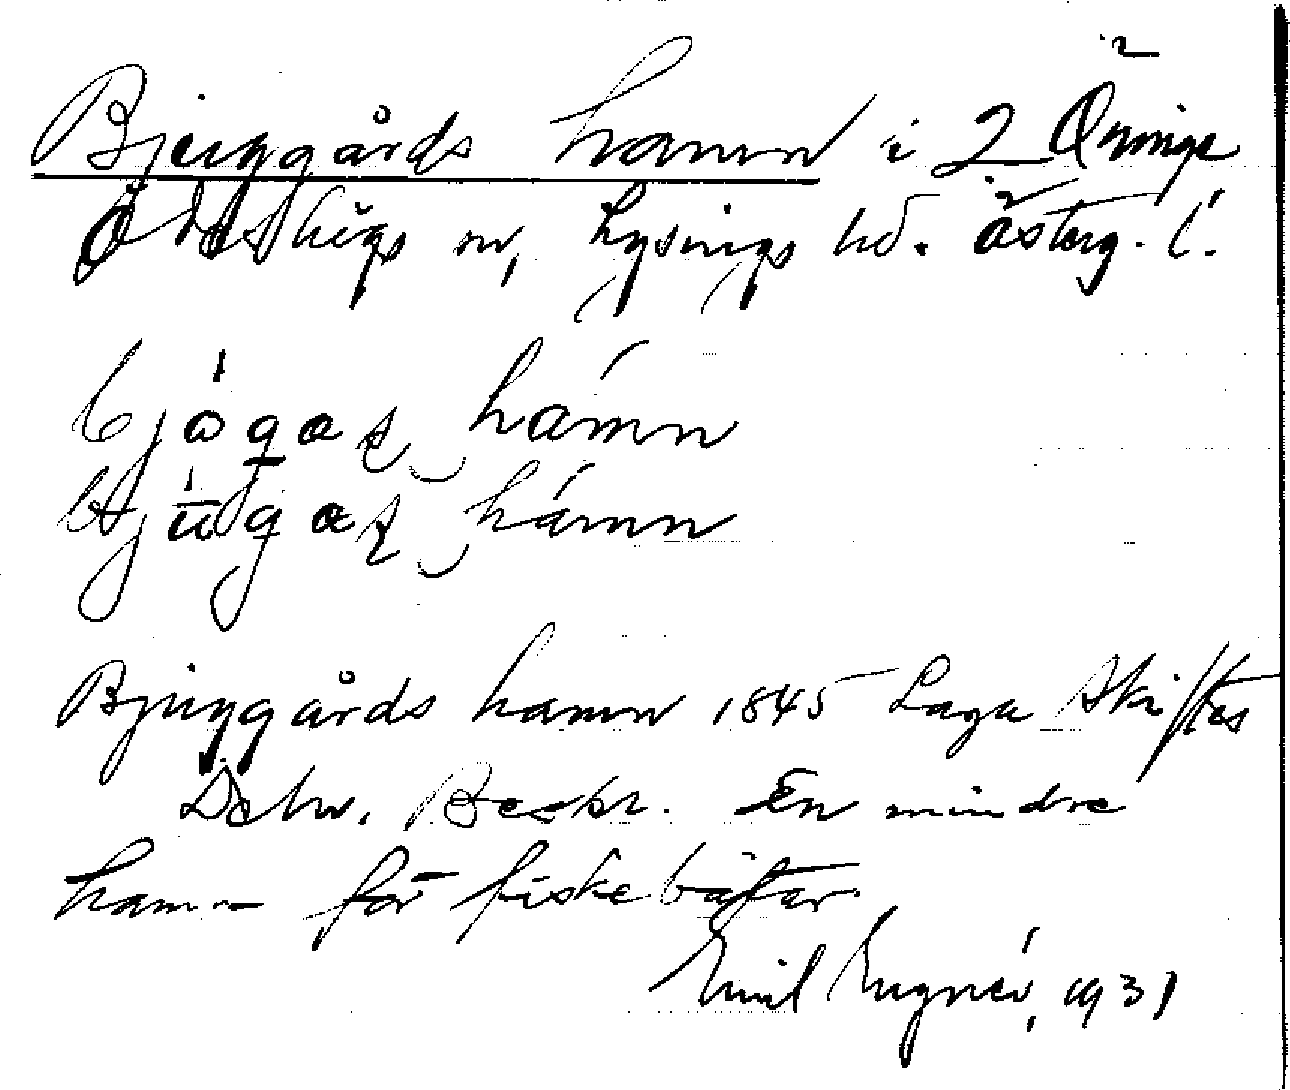 Bjurggårds hamn i 2 Önninge
Ödeshögs sn, Lysings hd. Österg. l.
bjȯgaʂ hámn
bju̇gaʂ hámn
Bjurggårds hamn 1845 Laga Skiftes
Delw. Beskr. En mindre
hamn för fiskebåtar.
Emil 1931